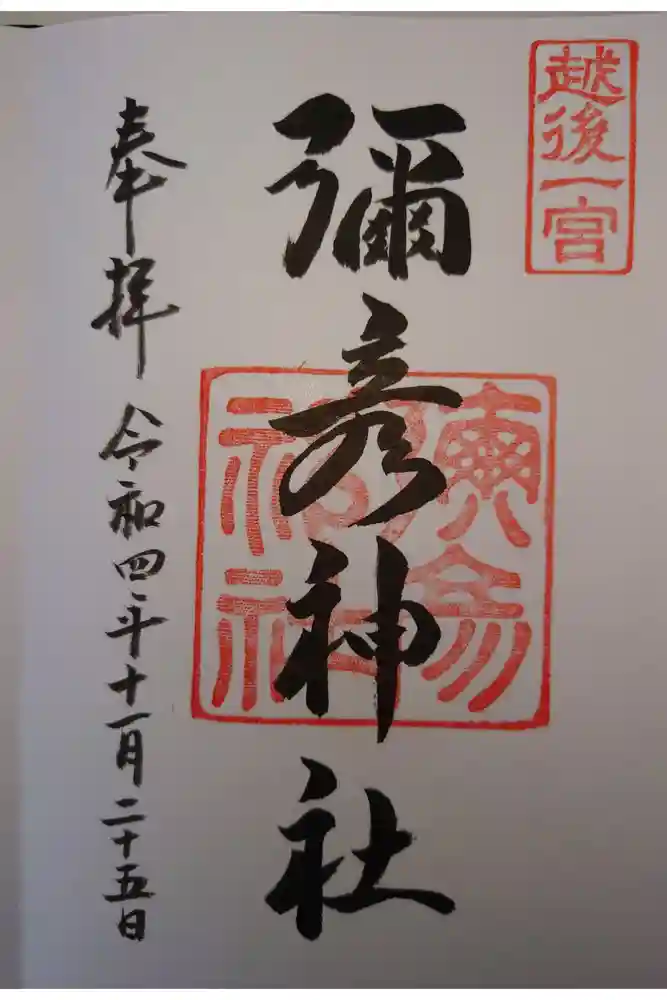 越後一宮
彌彦神社
奉拝
令和四年十一月二十五日